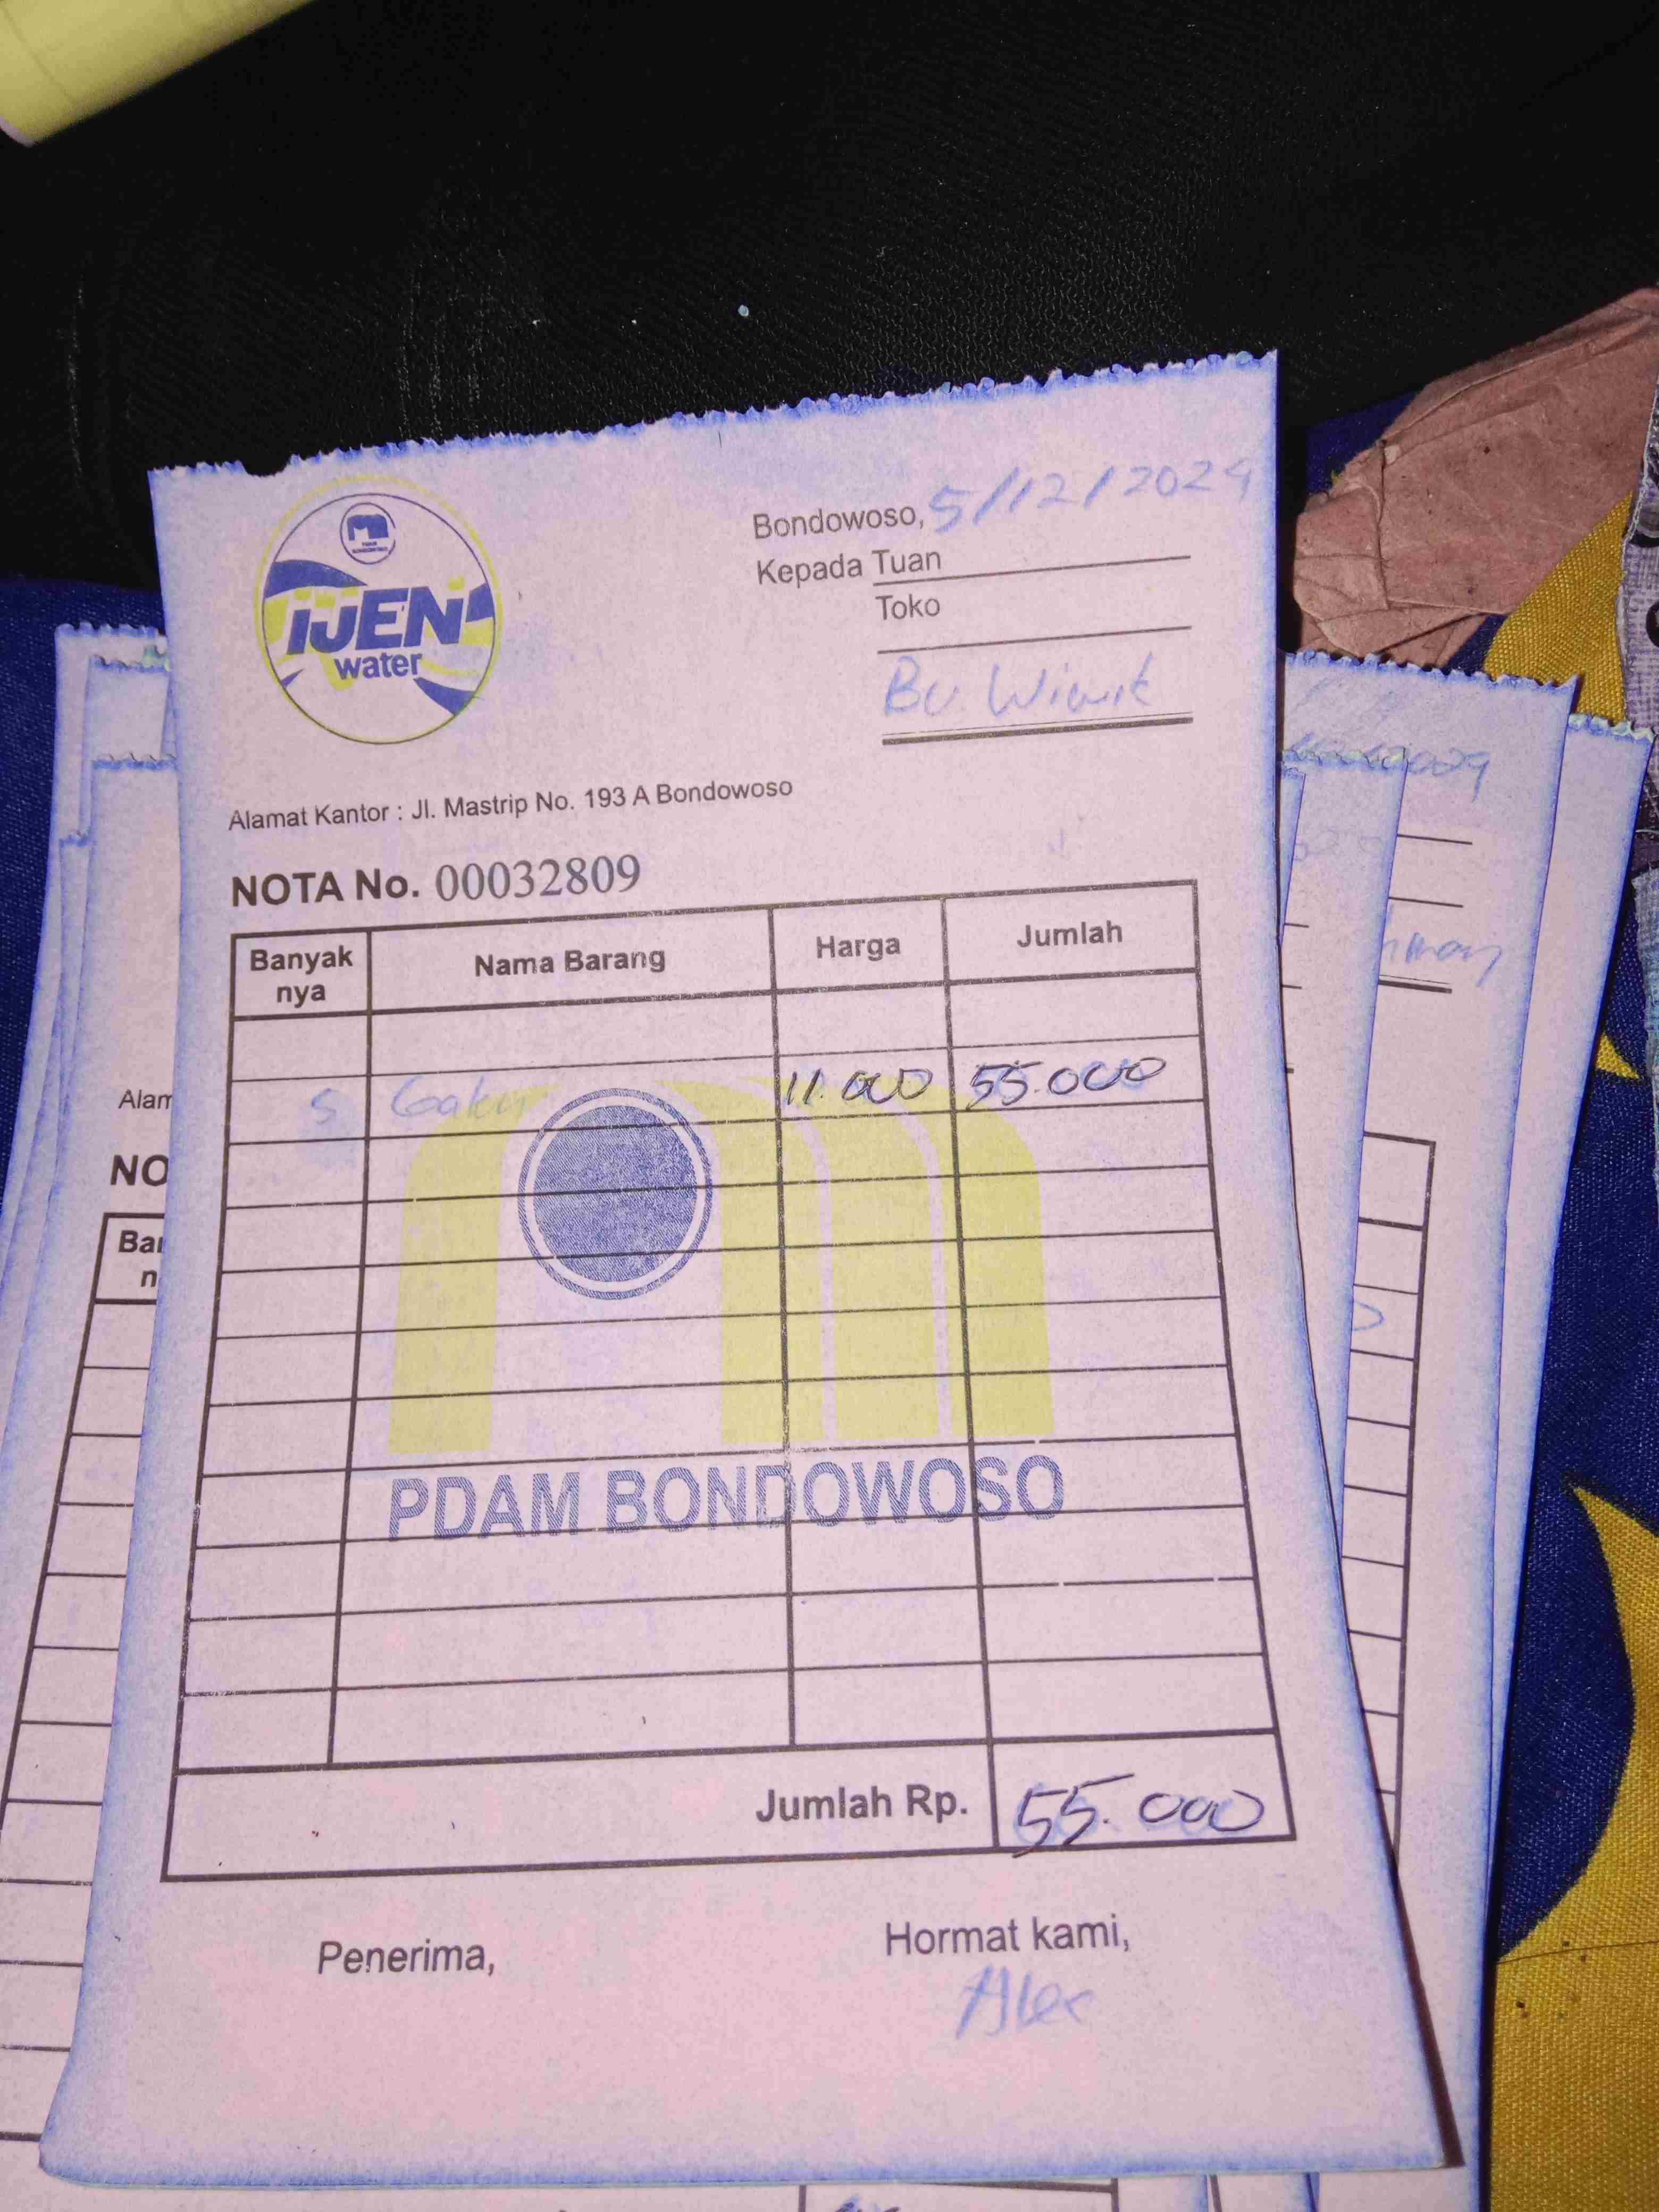 IJEN
water
Bondowoso, 5/12/2024
Kepada Tuan
Toko
Bu Wiwit
Alamat Kantor : Jl. Mastrip No. 193 A Bondowoso
NOTA No. 00032809
Banyak nya Nama Barang Harga Jumlah
5 Galon 11.000 55.000
PDAM BONDOWOSO
Jumlah Rp. 55.000
Penerima, Hormat kami,
Alex
Alam
NO
Ban
n